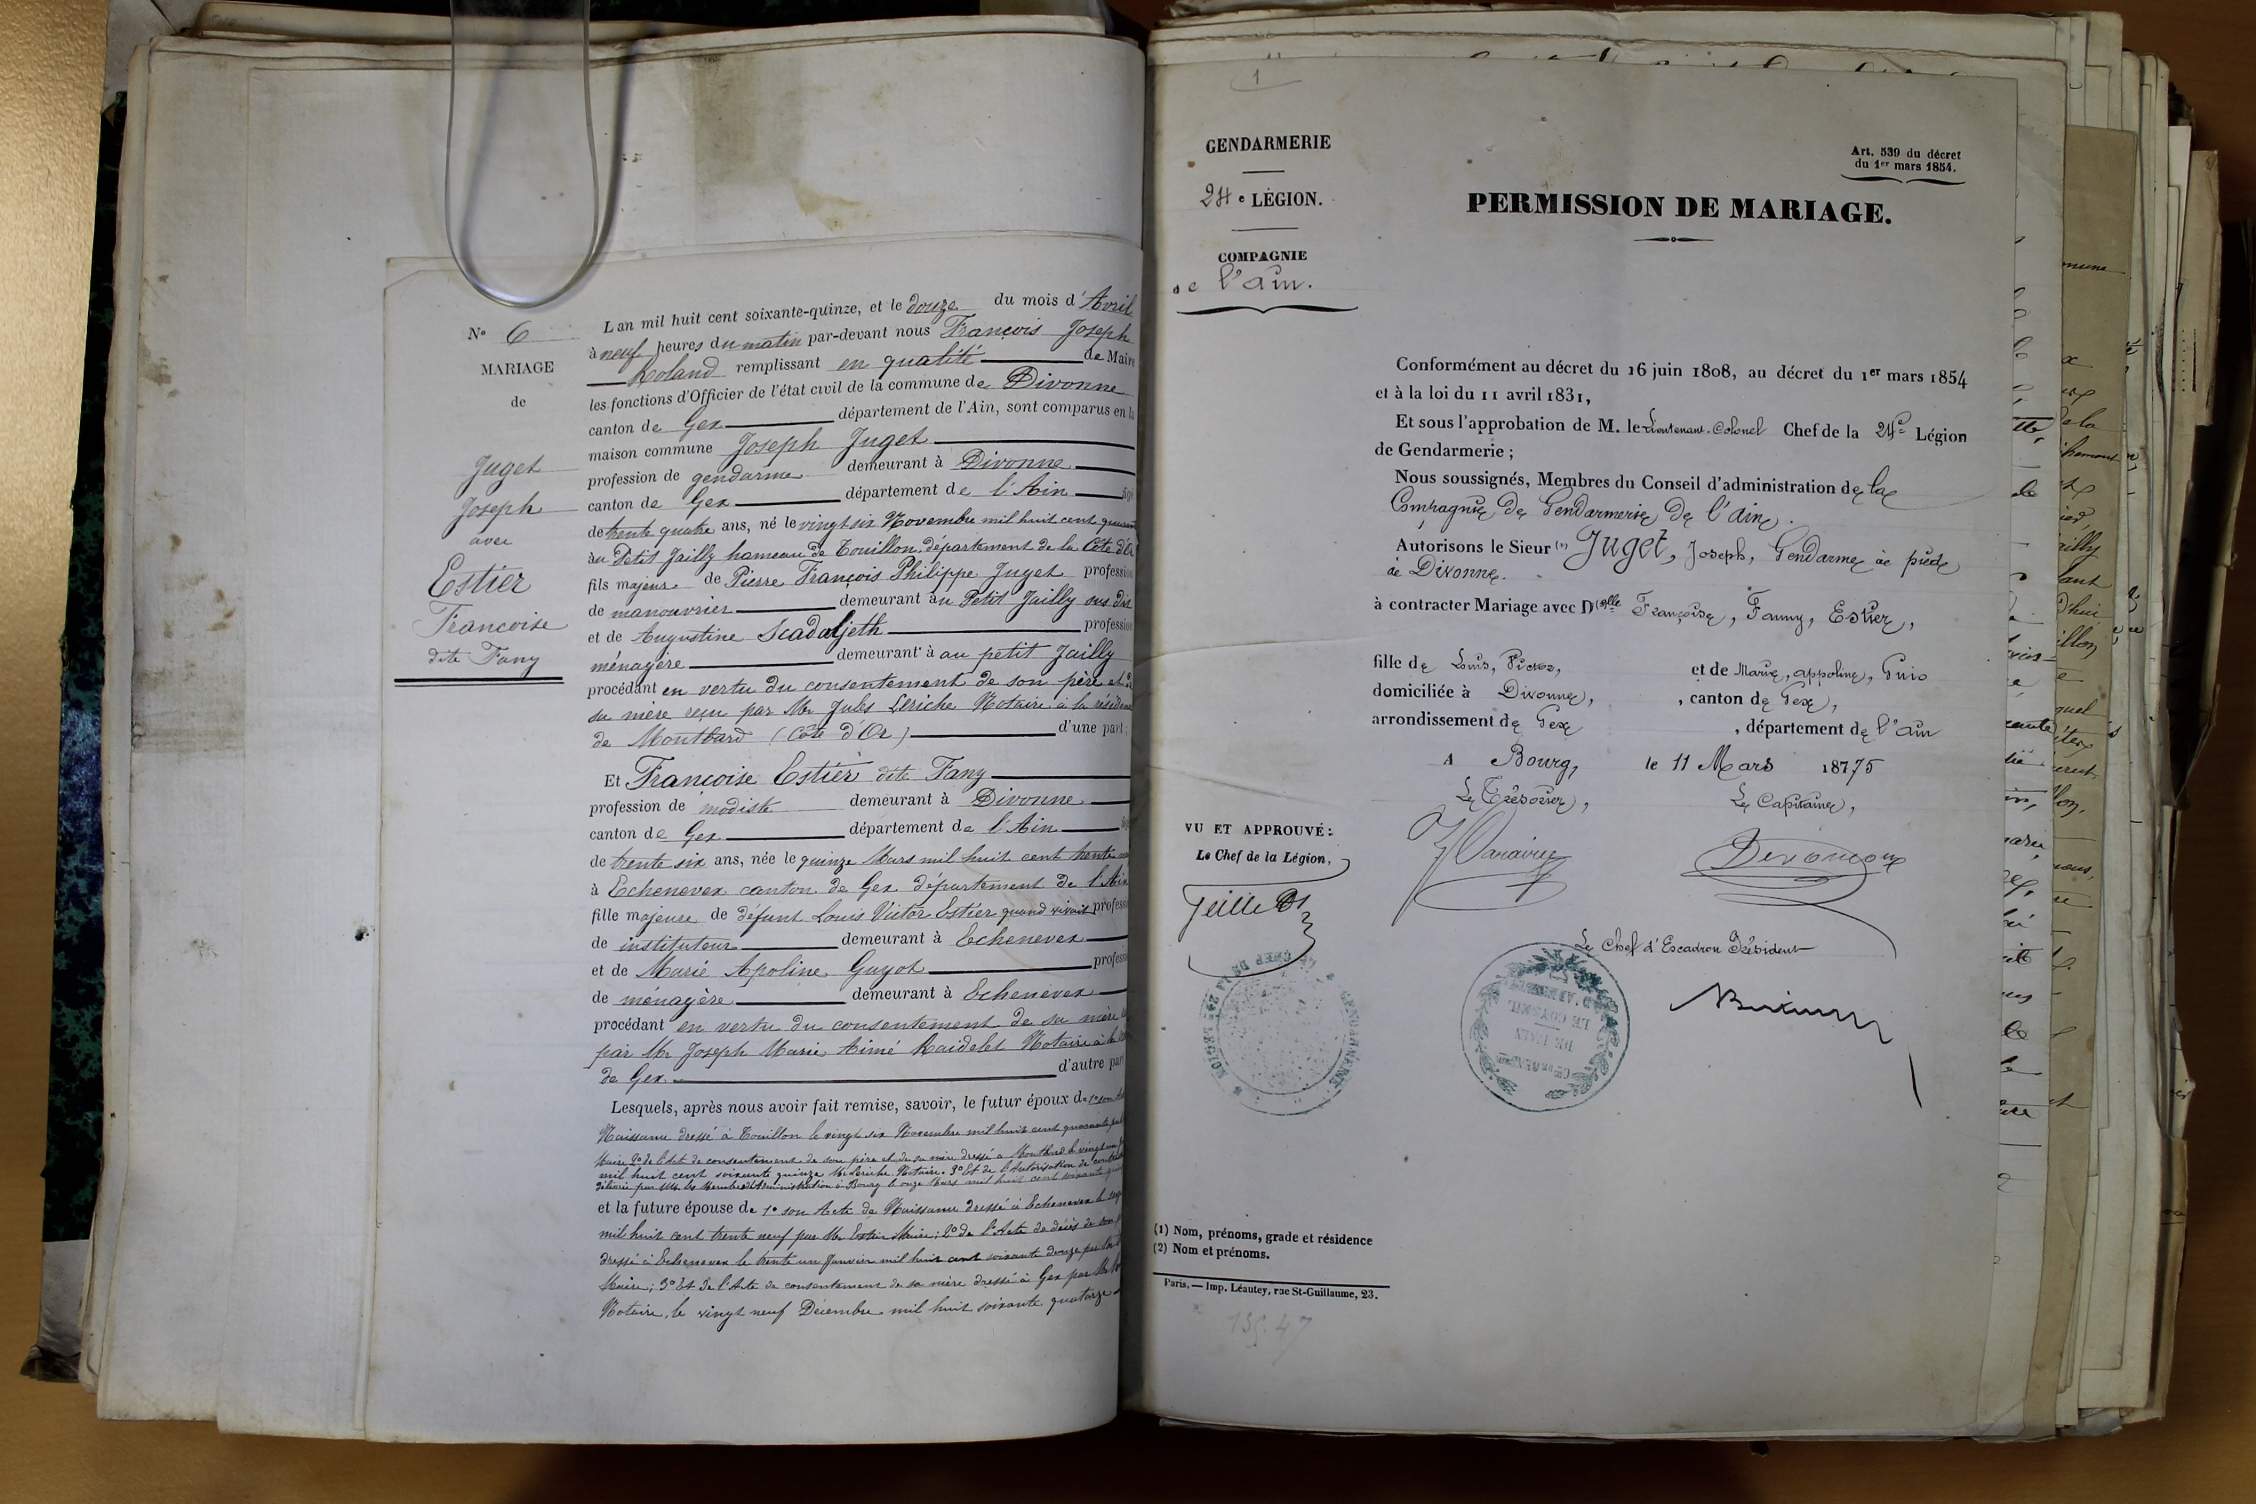 N° 6
MARIAGE
de
Juget
Joseph
avec
Estier
Francoise
dite Fany
L an mil huit cent soixante-quinze, et le douze du mois d'Avril
à neuf heures du matin par-devant nous François Joseph
Roland remplissant en qualité de Maire
les fonctions d'Officier de l'état civil de la commune de Divonne
canton de Gex département de l'Ain, sont comparus en la
maison commune Joseph Juget
profession de gendarme demeurant à Divonne
canton de Gex département de l'Ain âgé
de trente quatre ans, né le vingt six Novembre mil huit cent quarante
au Petit Jailly hameau de Touillon, département de la Côte d'Or
fils majeur de Pierre François Philippe Juget profession
de manouvrier demeurant au Petit Jailly sus dit
et de Augustine profession
ménagère demeurant à au petit Jailly
procédant en vertu du consentement de son père et de
sa mère reçu par Mr Jules Leriche Notaire à la résidence
de Montbard (Côte d'Or) d'une part;
Et Francoise Estier dite Fany
profession de modiste demeurant à Divonne
canton de Gex département de l'Ain âgée
de trente six ans, née le quinze Mars mil huit cent trente neuf
à Echenevex canton de Gex département de l'Ain
fille majeure de défunt Louis Victor Estier quand vivait profession
de instituteur demeurant à Echenevex
et de Marie Apoline Guyot profession
de ménagère demeurant à Echenevex
procédant en vertu du consentement de sa mère
par Mr Joseph Marie Aimé Raidelet Notaire à la
de Gex d'autre part
Lesquels, après nous avoir fait remise, savoir, le futur époux de 1° son Acte
Naissance dressé à Touillon le vingt six Novembre mil huit cent quarante
Maire 2° de l'Acte de consentement de son père et de sa mère dressé à Montbard le vingt
mil huit cent soixante quinze Mr Leriche Notaire. 3° Et de l'Autorisation de
délivrée par MM. les Membres d'Administration à Bourg le onze Mars mil huit cent soixante quinze
et la future épouse de 1° son Acte de Naissance dressé à Echenevex le
mil huit cent trente neuf par Mr Estier Maire; 2° de l'Acte de décès de son
dressé à Echenevex le trente un Janvier mil huit cent soixante douze par
Maire; 3° Et de l'Acte de consentement de sa mère dressé à Gex par Mr
Notaire, le vingt neuf Décembre mil huit soixante quatorze
1
GENDARMERIE
24e LÉGION.
COMPAGNIE
de l'Ain.
Art. 539 du décret
du 1er mars 1854.
PERMISSION DE MARIAGE.
Conformément au décret du 16 juin 1808, au décret du 1er mars 1854
et à la loi du 11 avril 1831,
Et sous l'approbation de M. le Lieutenant-Colonel Chef de la 24e Légion
de Gendarmerie;
Nous soussignés, Membres du Conseil d'administration de la
Compagnie de Gendarmerie de l'Ain.
Autorisons le Sieur (1) Juget, Joseph, Gendarme à pied
à Divonne.
à contracter Mariage avec D(2)lle Françoise, Fanny, Estier,
fille de Louis, Victor, et de Marie, appoline, Guio
domiciliée à Divonne, , canton de Gex,
arrondissement de Gex , département de l'Ain
A Bourg, le 11 Mars 1875
Le Trésorier, Le Capitaine,
VU ET APPROUVÉ:
Le Chef de la Légion,
Le Chef d'Escadron Président
(1) Nom, prénoms, grade et résidence
(2) Nom et prénoms.
Paris. — Imp. Léautey, rue St-Guillaume, 23.
135.47